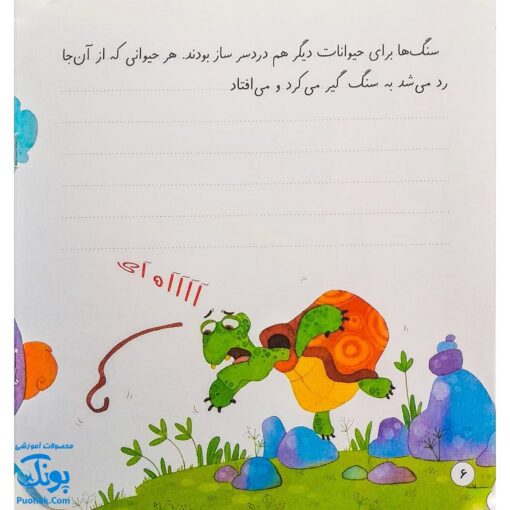 سنگ‌ها برای حیوانات دیگر هم دردسر ساز بودند. هر حیوانی که از آن‌جا
رد می‌شد به سنگ گیر می‌کرد و می‌افتاد
آآآآه آی
۶
محصولات آموزشی
پونک
Puonak.Com